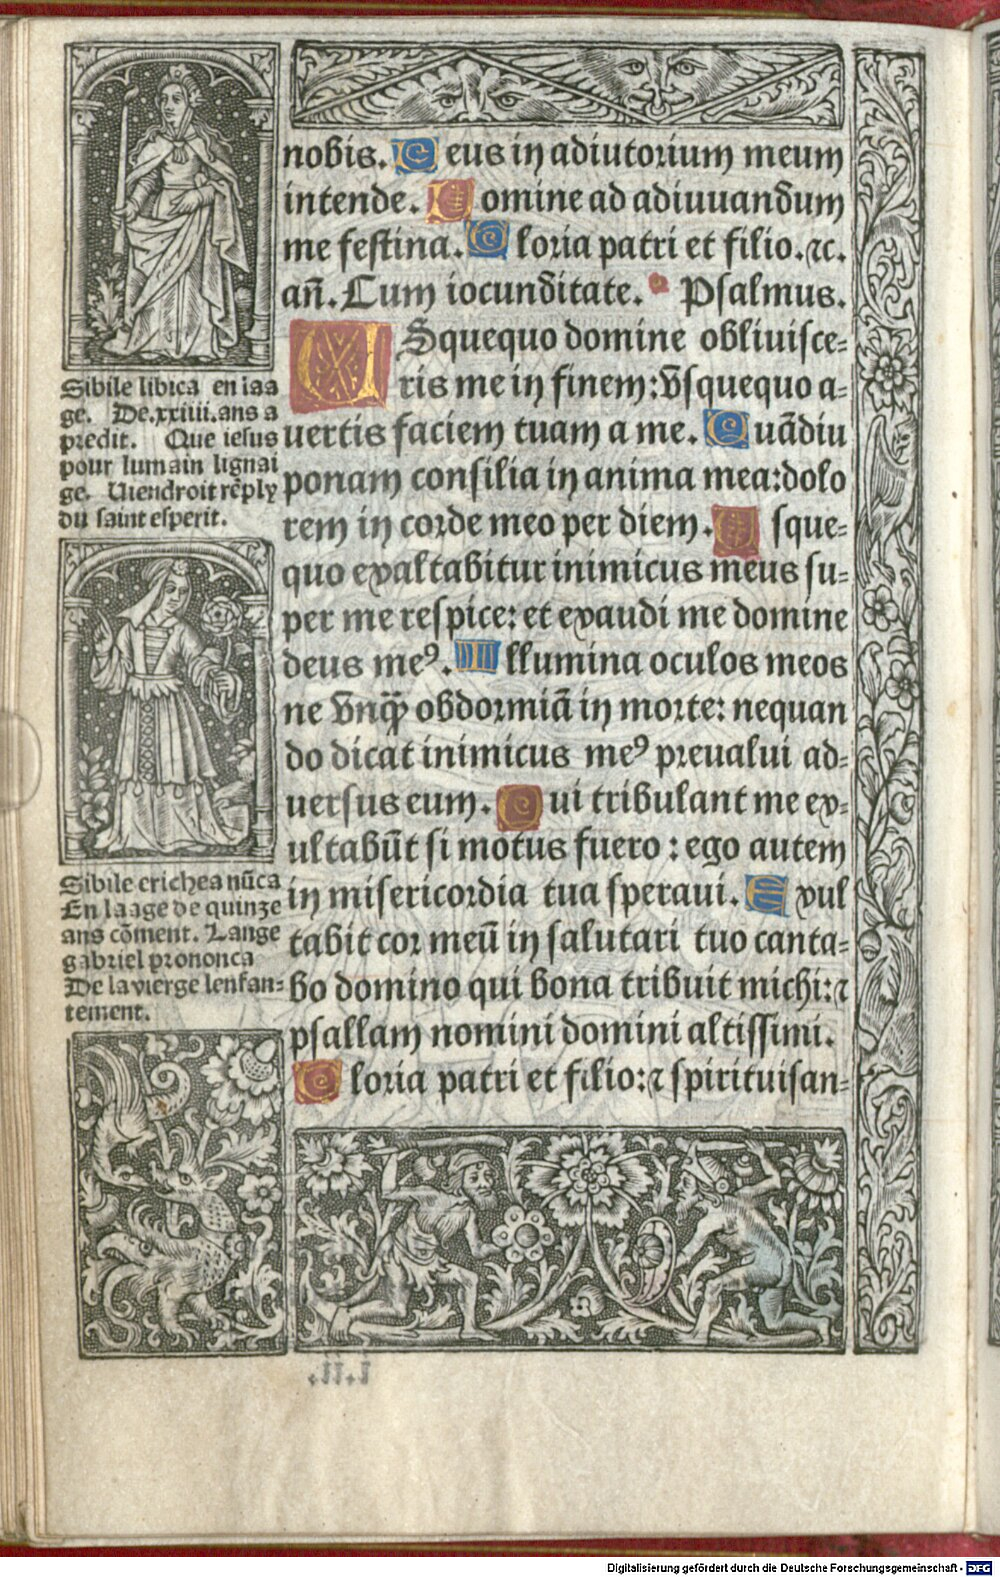 nobis. Deus in adiutorium meum
intende. Domine ad adiuuandum
me festina. Gloria patri et filio. ⁊c.
an̄. Cum iocunditate. Psalmus.
USquequo domine obliuisce-
ris me in finem: vsquequo a-
uertis faciem tuam a me. Quādiu
ponam consilia in anima mea: dolo
rem in corde meo per diem. Usque-
quo exaltabitur inimicus meus su-
per me respice: et exaudi me domine
deus meꝰ. Illumina oculos meos
ne vnqꝫ̄ obdormiā in morte: nequan
do dicat inimicus meꝰ preualui ad-
uersus eum. Qui tribulant me ex-
ultabūt si motus fuero: ego autem
in misericordia tua speraui. Exul
tabit cor meū in salutari tuo canta-
bo domino qui bona tribuit michi: ⁊
psallam nomini domini altissimi.
Gloria patri et filio: ⁊ spiritui san-
Sibile libica en laa
ge. De.xxiiii.ans a
predit. Que iesus
pour lumain lignai
ge. Uiendroit rēply
du saint esperit.
Sibile erichea nūca
En laage de quinze
ans cōment. Lange
gabriel prononca
De la vierge lenfan-
tement.
Digitalisierung gefördert durch die Deutsche Forschungsgemeinschaft - DFG